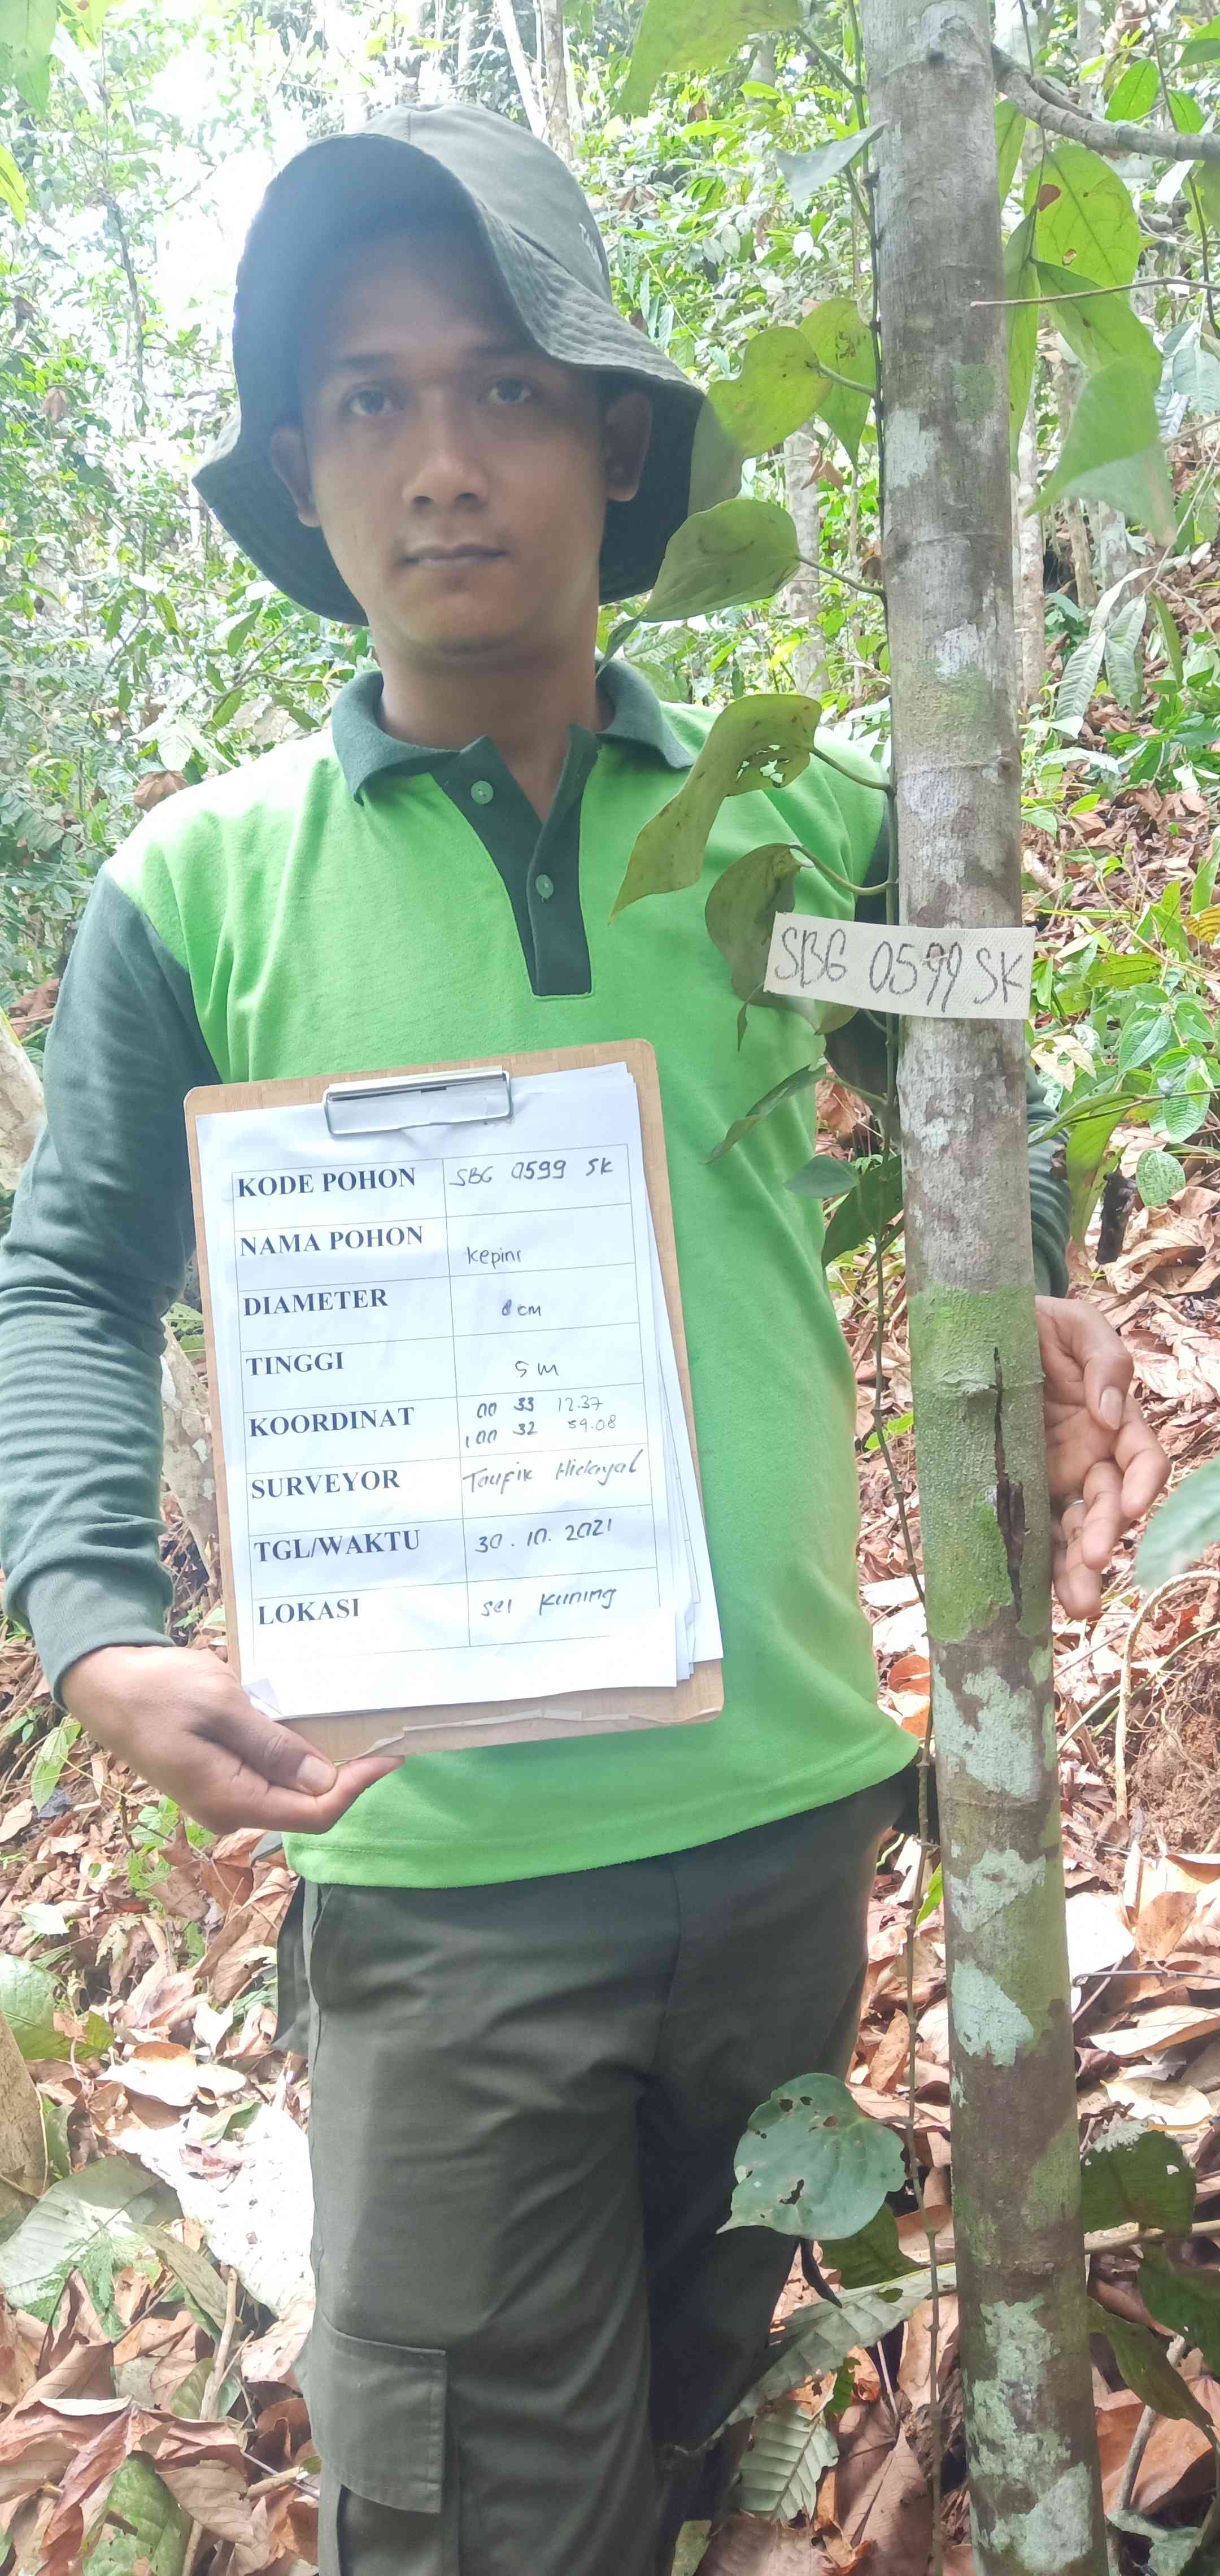 SBG 0599 SK
KODE POHON SBG 0599 SK
NAMA POHON kepini
DIAMETER 8 cm
TINGGI 5 m
KOORDINAT 00 33 12.37
100 32 59.08
SURVEYOR Taufik Hidayat
TGL/WAKTU 30.10.2021
LOKASI sei kuning